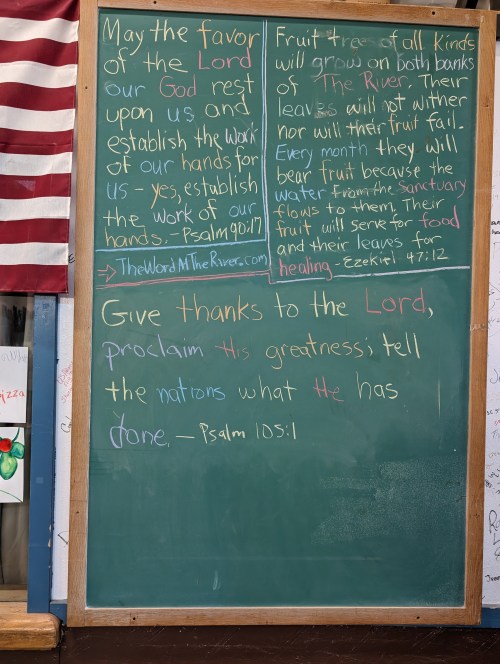 May the favor
of the Lord
our God rest
upon us and
establish the work
of our hands for
us - yes, establish
the work of our
hands. - Psalm 90:17
→ TheWordNTheRiver.com
Fruit trees of all kinds
will grow on both banks
of The River. Their
leaves will not wither
nor will their fruit fail.
Every month they will
bear fruit because the
water from the Sanctuary
flows to them. Their
fruit will serve for food
and their leaves for
healing - Ezekiel 47:12
Give thanks to the Lord,
proclaim His greatness; tell
the nations what He has
done. - Psalm 105:1
izza